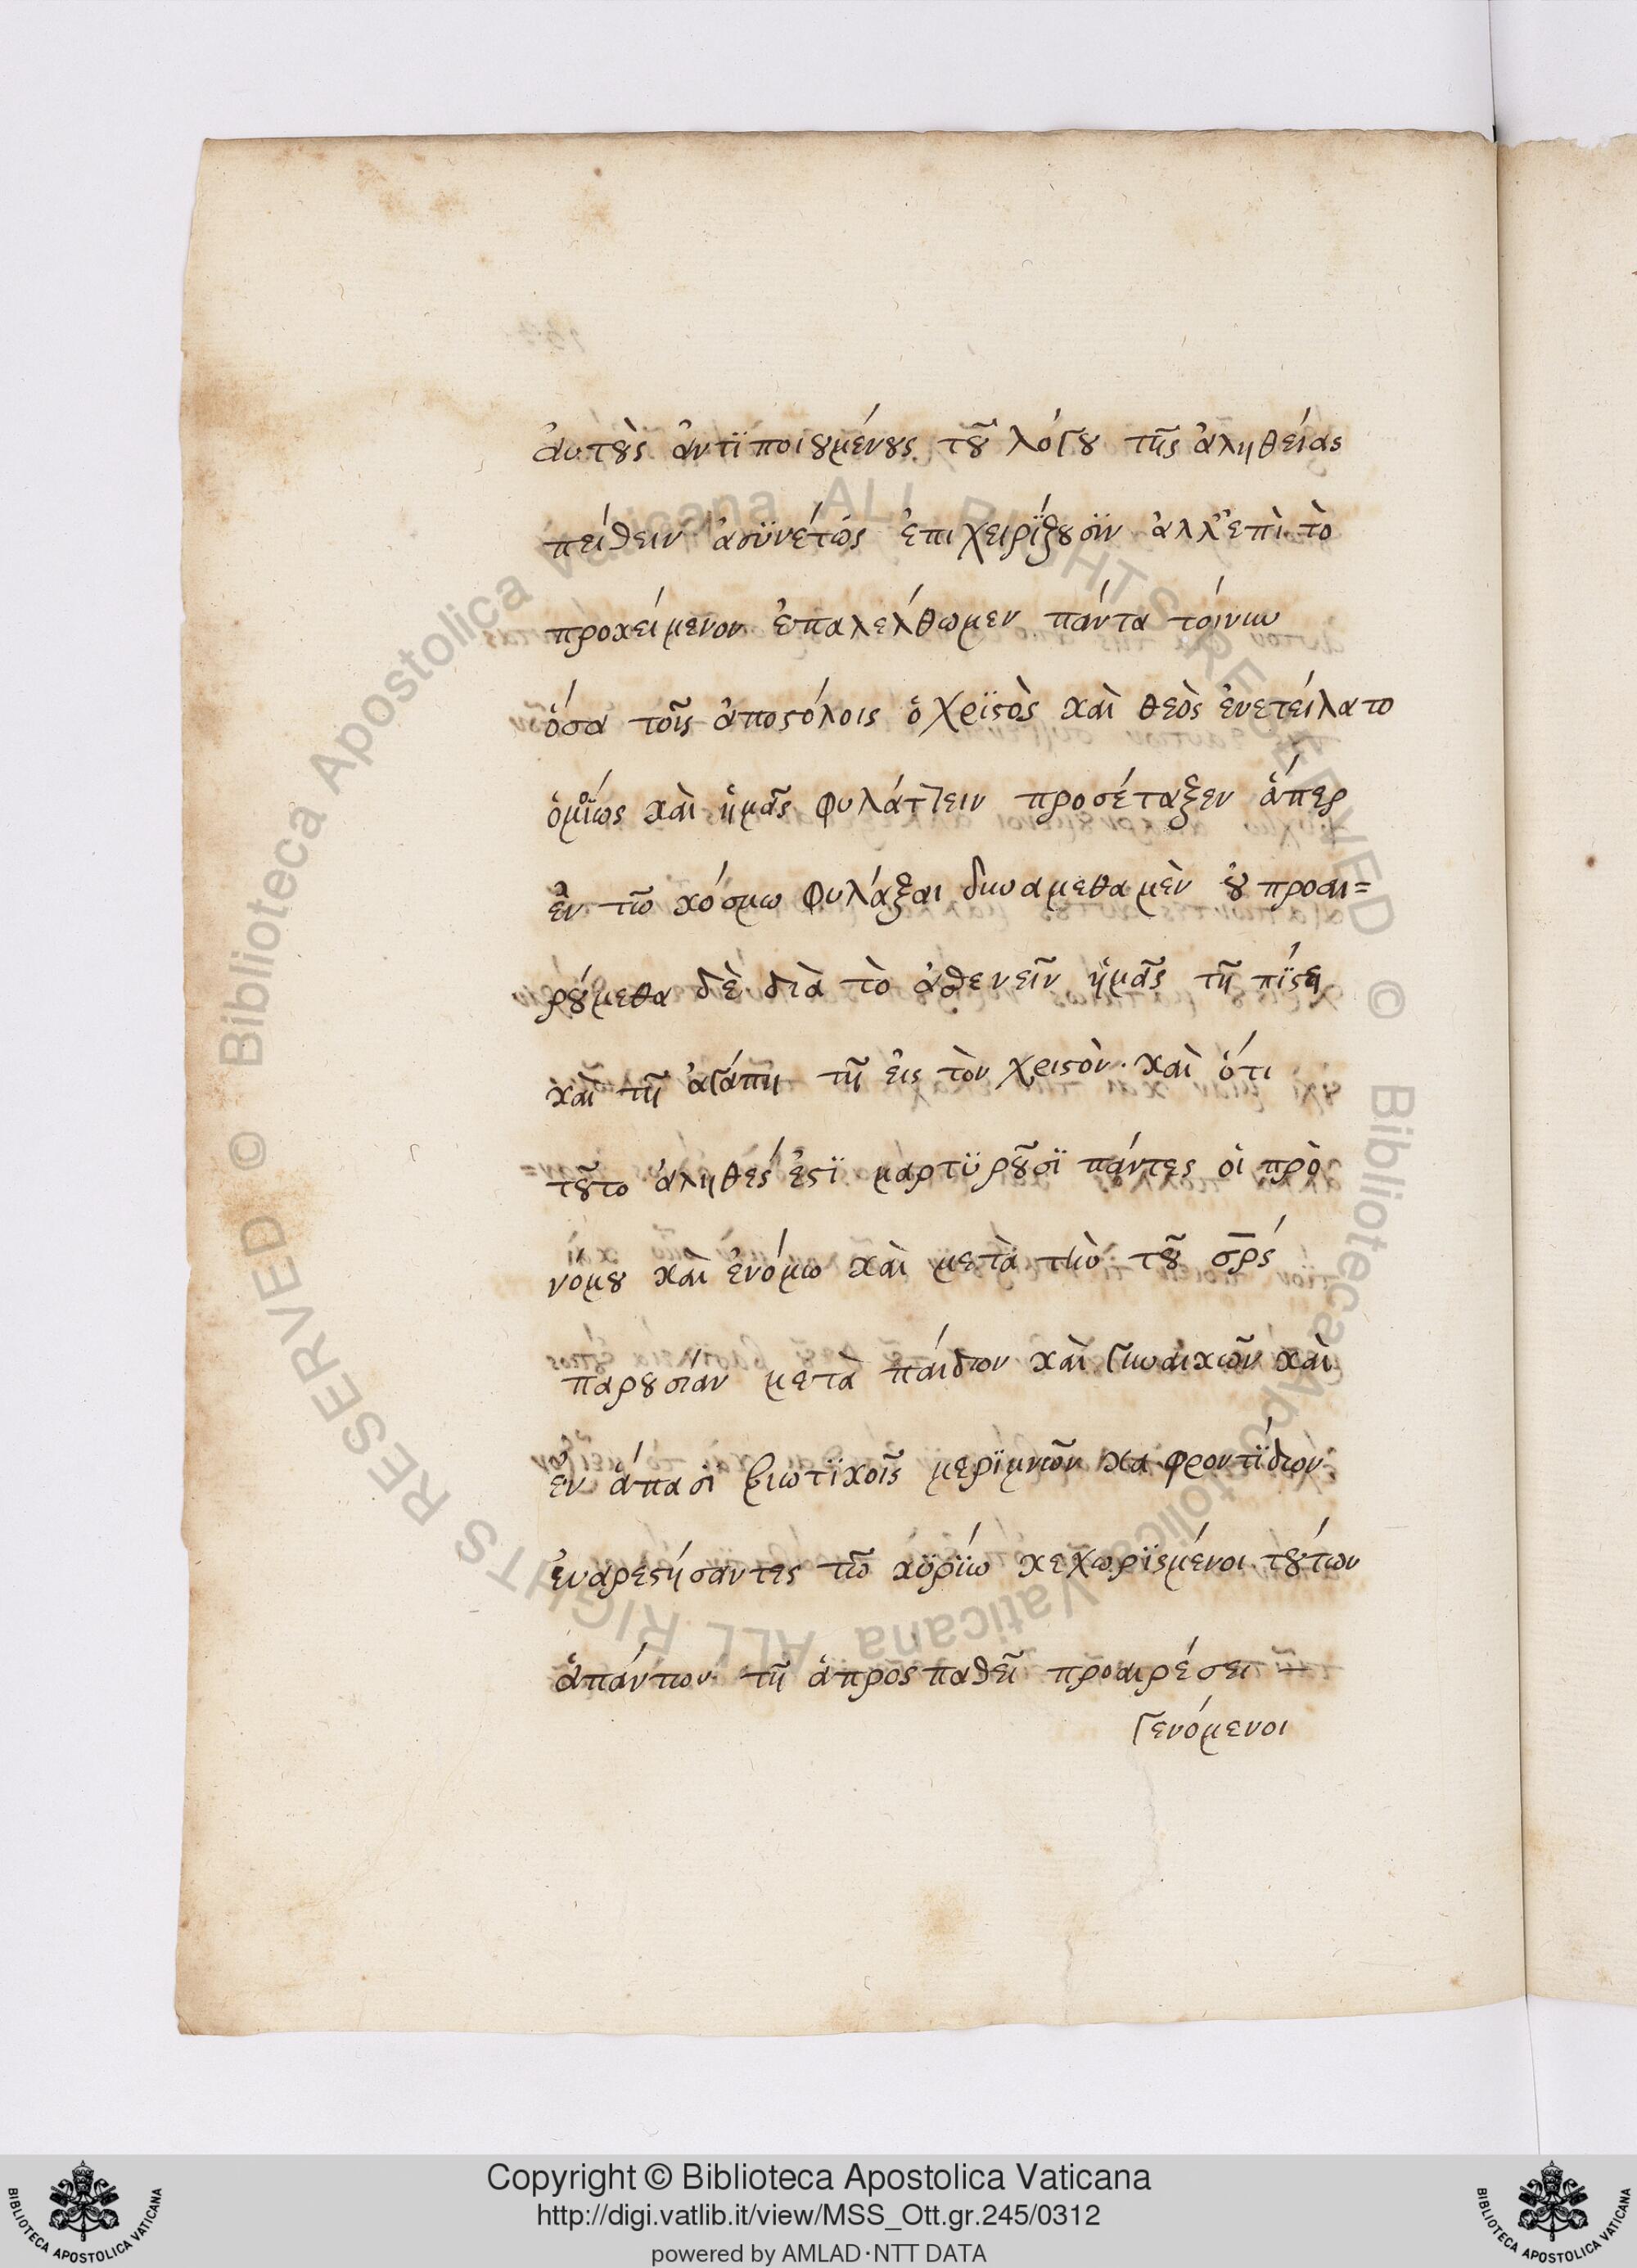 ἀυτοὺς ἀντϊποιουμένους τοῦ λόγου τῆς ἀληθείας
πείθειν ἀσϋνέτως ἐπιχειρΐζουσϊν ἀλλ' ἐπὶ τὸ
προκείμενον ἐπαλελθωμεν πάντα τοίνυν
ὅσα τοῖς ἀποστόλοις ὁ Χρϊστὸς καὶ θεὸς ἐνετείλατο
ὁμοίως καὶ ἡμᾶς φυλάττειν προσέταξεν ἅπερ
ἐν τῶ κόσμω φυλάξαι δυναμεθα μὲν οὐ προαι=
ρούμεθα δὲ διὰ τὸ ἀσθενεῖν ἡμᾶς τῆ πίστει
καὶ τῆ ἀγάπη τῆ εἰς τὸν χριστὸν. καὶ ὅτι
τοῦτο ἀληθές ἐστϊ μαρτϋροῦσϊ πάντες οἱ πρὸ
νομου καὶ ἐνόμω καὶ μετὰ τὴν τοῦ σρ̅ς
παρουσίαν μετὰ πάιδων καὶ γυναικῶν καὶ
ἐν ἅπασι βιωτϊκοῖς μερϊμνῶν κα φροντΐδων
ἐυαρεστήσαντες τῶ κϋρΐω κεχωρϊσμένοι τούτων
ἁπάντων τῆ ἀπροσπαθεῖ προαιρέσει
γενόμενοι
Copyright © Biblioteca Apostolica Vaticana
http://digi.vatlib.it/view/MSS_Ott.gr.245/0312
powered by AMLAD·NTT DATA
BIBLIOTECA APOSTOLICA VATICANA
BIBLIOTECA APOSTOLICA VATICANA
© Biblioteca Apostolica Vaticana ALL RIGHTS RESERVED
© Biblioteca Apostolica Vaticana ALL RIGHTS RESERVED